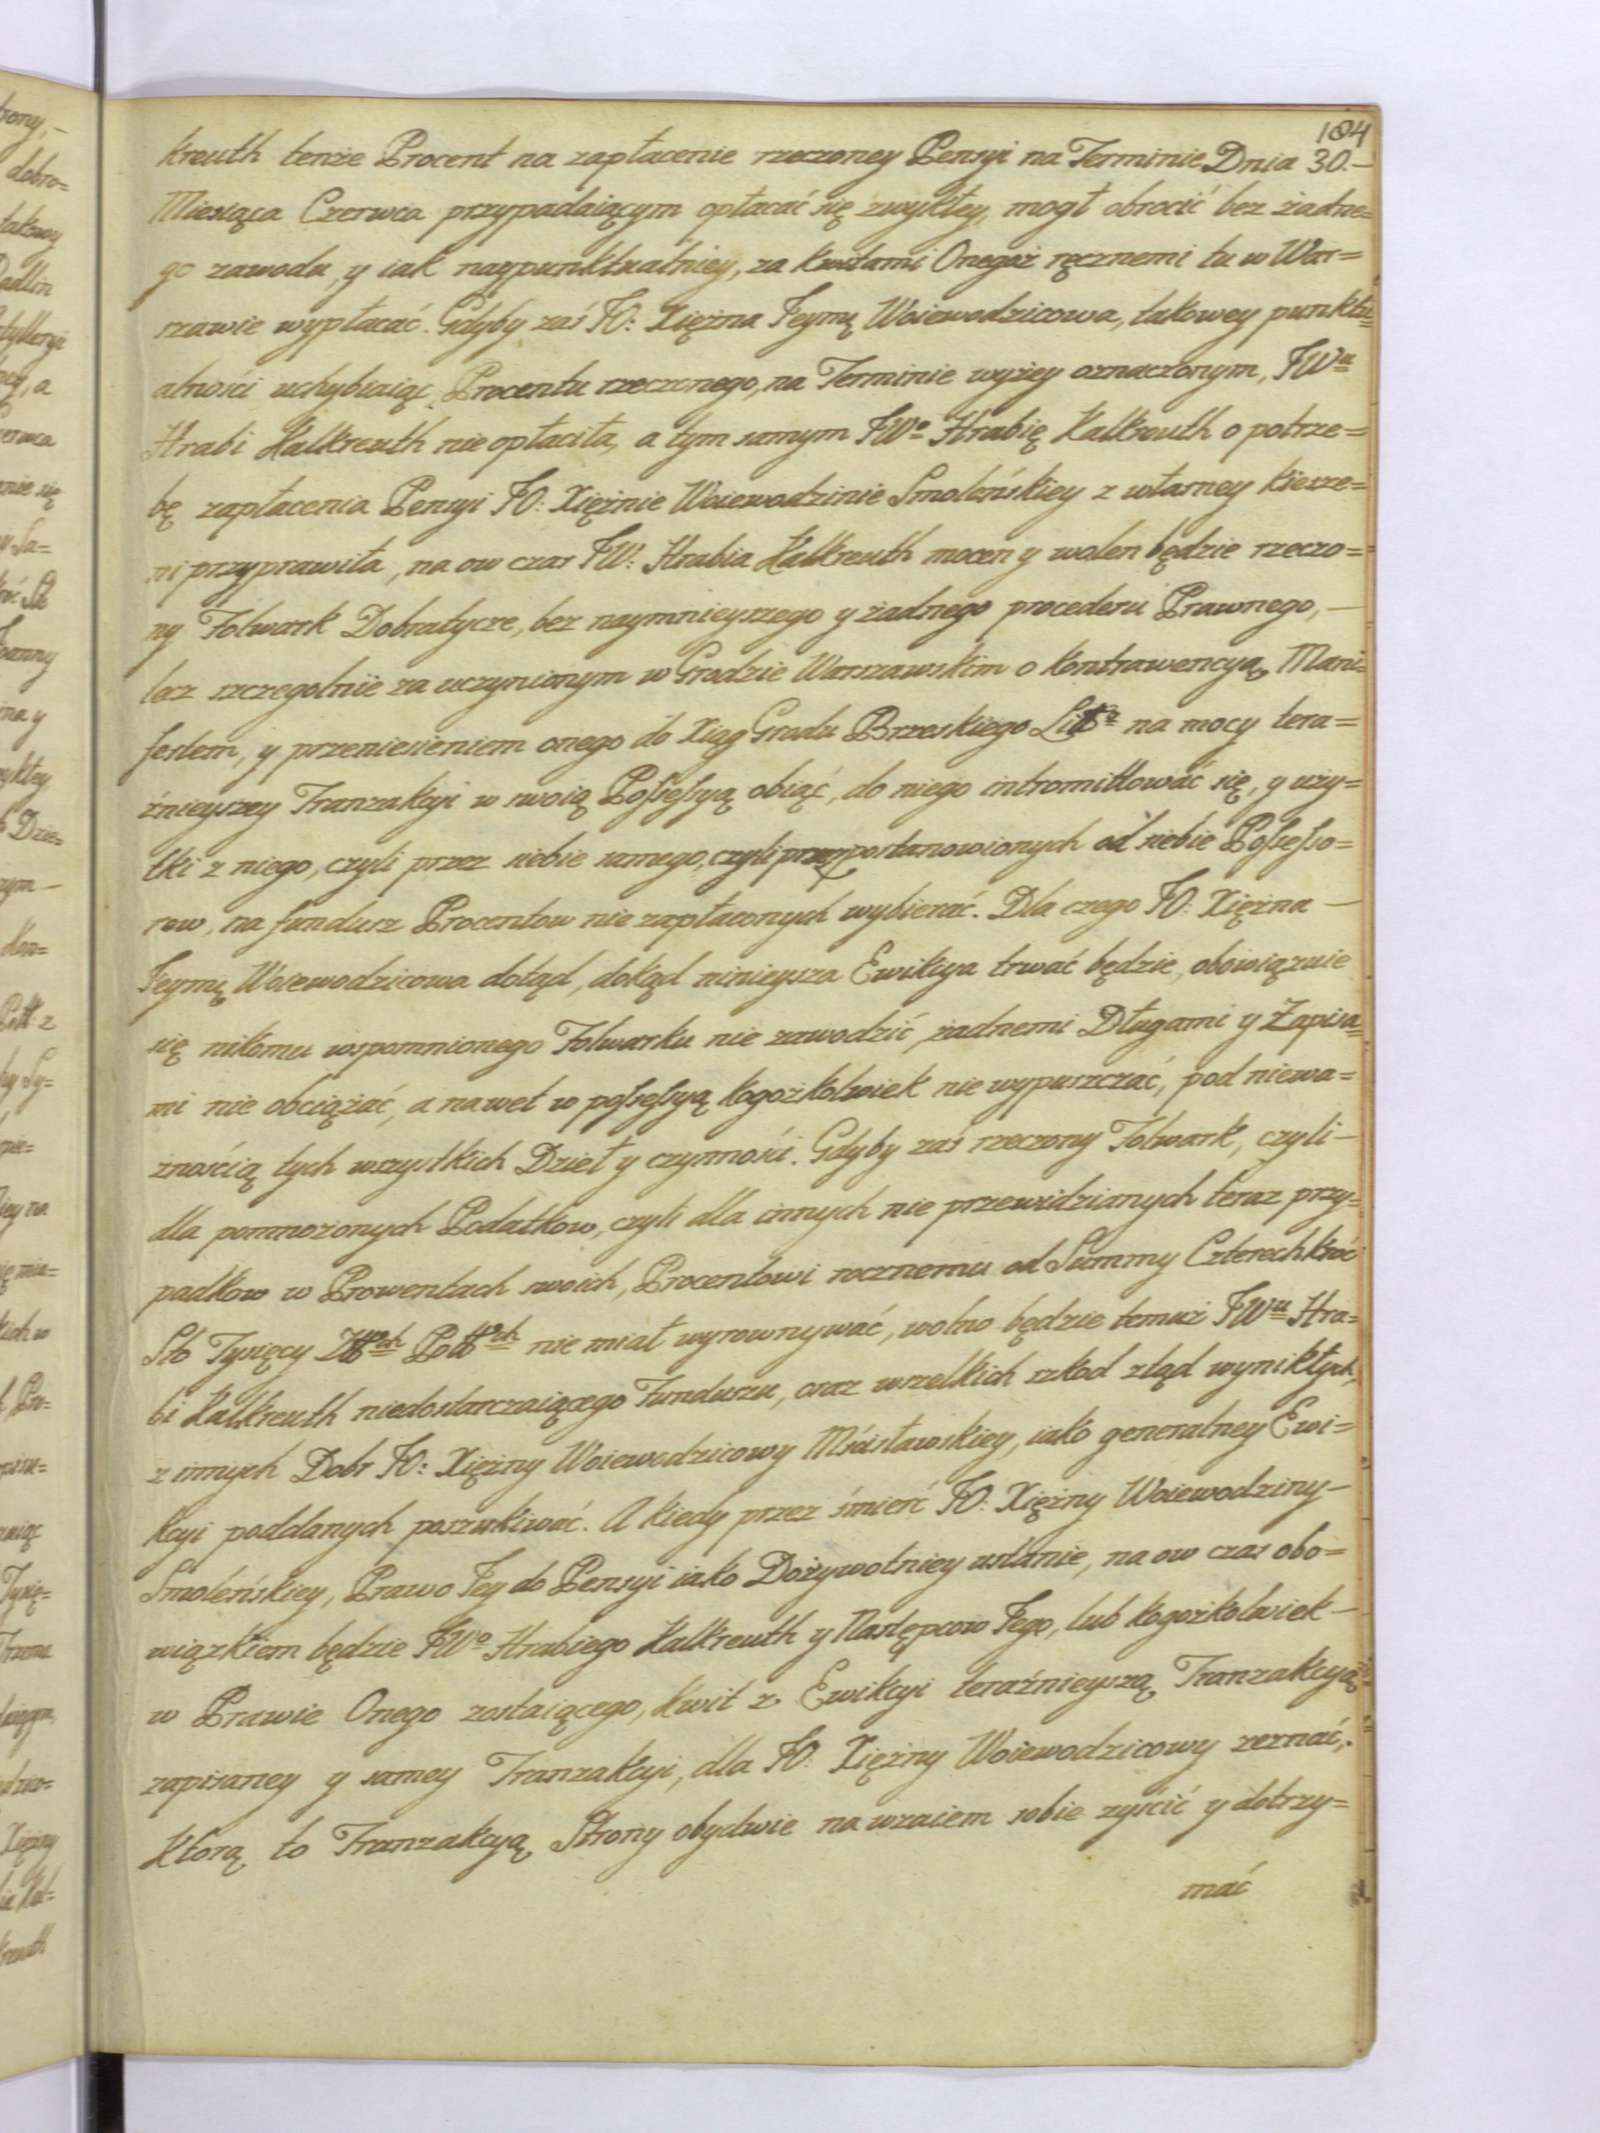 104
kreuth tenże Procent na zapłacenie rzeczoney Pensyi na Terminie Dnia 30.—
Miesiąca Czerwca przypadaiącym opłacać się zwykłey, mogł obrocić bez żadne=
go zawodu, y iak naypunktualniey, za kwitami Onegoż ręcznemi tu w War=
szawie wypłacać. Gdyby zaś JO: Xiężna Jeymę Woiewodzicowa, takowey punktu=
alności uchybiaiąc Procentu rzeczonego, na Terminie wyżey oznaczonym, JWu
Hrabi Kalkreuth nie opłaciła, a tym samym JWo Hrabię Kalkreuth o potrze=
bę zapłacenia Pensyi JO: Xiężnie Woiewodzinie Smoleńskiey z własney kiesze=
ni przyprawiła, na ow czas JW: Hrabia Kalkreuth mocen y wolen będzie rzeczo=
ny Folwark Dobratycze, bez naymnieyszego y żadnego procederu Prawnego, —
lecz szczegolnie za uczynionym w Grodzie Warszawskim o kontrawencyą Mani=
festem, y przeniesieniem onego do Xiąg Grodu Brzeskiego Litgo na mocy tera=
źnieyszey Tranzakcyi w swoią Possessyą obiąć, do niego intromittować się, y uży=
tki z niego, czyli przez siebie samego, czyli przez postanowionych od siebie Possesso=
row, na fundusz Procentow nie zapłaconych wybierać. Dla czego JO: Xiężna —
Jeymę Woiewodzicowa dotąd, dokąd ninieysza Ewikcya trwać będzie, obowiązuie
się nikomu wspomnionego Folwarku nie zawodzić, żadnemi Długami y Zapisa=
mi nie obciążać, a nawet w possessyą kogożkolwiek nie wypuszczać, pod niewa=
żnością tych wszystkich Dzieł y czynności. Gdyby zaś rzeczony Folwark, czyli —
dla pomnożonych Podatkow, czyli dla innych nie przewidzianych teraz przy=
padkow w Prowentach swoich, Procentowi rocznemu od Summy Czterechkroć
Sto Tysięcy Złłych Polłłch nie miał wyrownywać, wolno będzie temuż JWu Hra=
bi Kalkreuth niedostarczaiącego Funduszu, oraz wszelkich szkod ztąd wynikłych,
z innych Dobr JO: Xiężny Woiewodzicowy Mścisławskiey, iako generalney Ewi=
kcyi poddanych poszukiwać. A kiedy przez śmierć JO: Xiężny Woiewodziny —
Smoleńskiey, Prawo Jey do Pensyi iako Dożywotniey ustanie, na ow czas obo=
wiązkiem będzie JWo Hrabiego Kalkreuth y Następcow Jego, lub kogożkolwiek —
w Prawie Onego zostaiącego, kwit z Ewikcyi teraźnieyszą Tranzakcyą
zapisaney y samey Tranzakcyi, dla JO: Xiężny Woiewodzicowy zeznać,.
Którą to Tranzakcyą Strony obydwie na wzaiem sobie zyścić y dotrzy=
mać